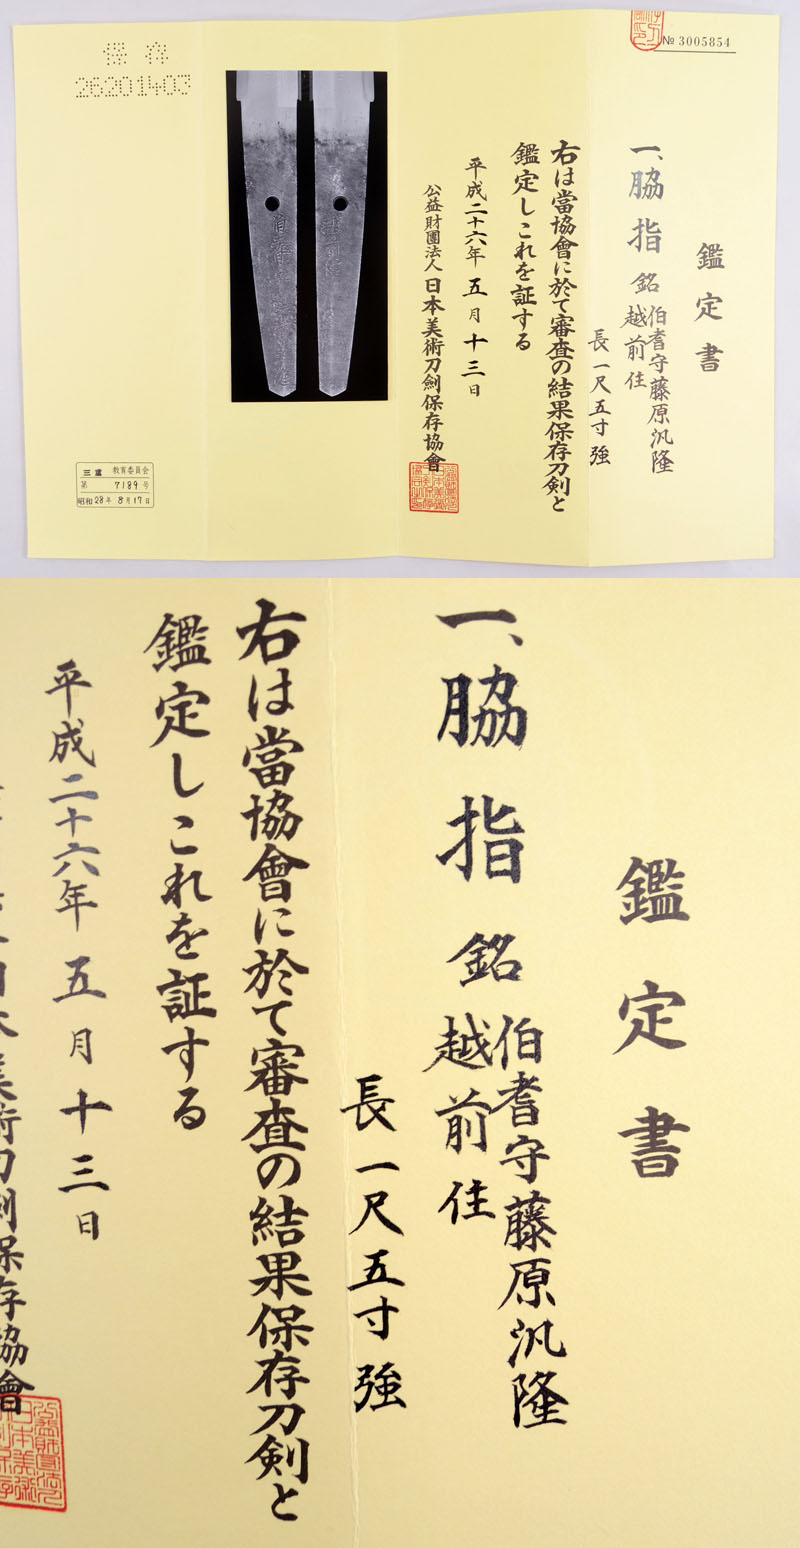 № 3005854
鑑定書
一、脇指 銘 伯耆守藤原汎隆
越前住
長一尺五寸強
右は當協會に於て審査の結果保存刀剣と
鑑定しこれを証する
平成二十六年 五月十三日
公益財團法人 日本美術刀劍保存協會
保存
26201403
三重 教育委員会
第 7189 号
昭和 28年 8月17日
鑑定書
一、脇指 銘 伯耆守藤原汎隆
越前住
長一尺五寸強
右は當協會に於て審査の結果保存刀剣と
鑑定しこれを証する
平成二十六年 五月十三日
日本美術刀劍保存協會